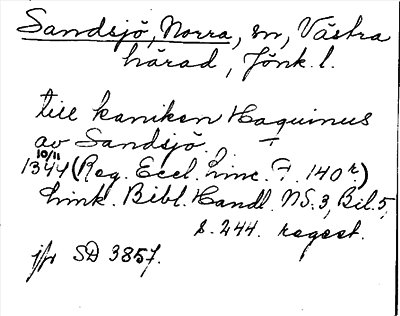 Sandsjö, Norra, sn, Västra
härad, Jönk. l.
till kaniken Haquinus
av Sandsjö.
10/11
1344 (Reg. Eccl. Linc. F. 140r)
Link. Bibl. Handl. NS. 3, Bil. 5,
s. 244. regest.
jfr SD 3857.